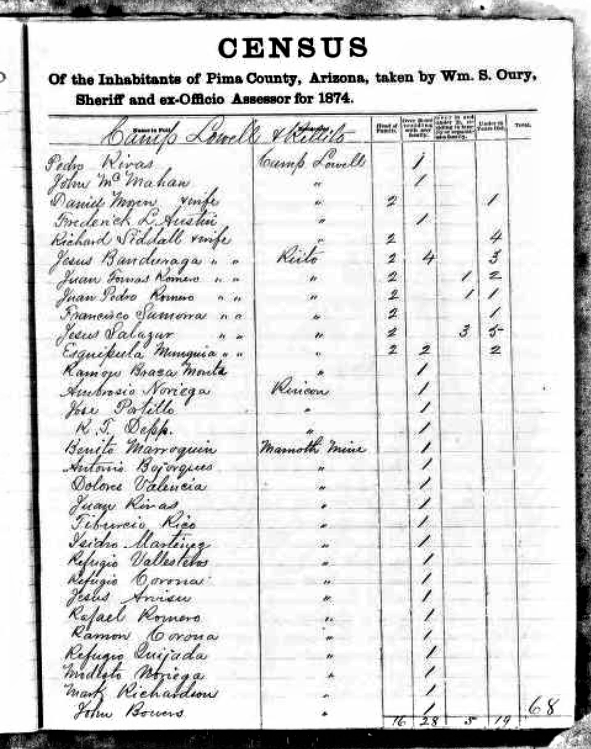 CENSUS
Of the Inhabitants of Pima County, Arizona, taken by Wm. S. Oury,
Sheriff and ex-Officio Assessor for 1874.
Name in Full. Head of Family. Under 10 Years Old. Total.
Camp Lowell & Rillito
Pedro Rivas Camp Lowell 1
John McMahan " 1
Daniel Moren & wife " 2 1
Frederick L. Austin " 1
Richard Siddall & wife " 2 4
Jesus Banduraga " " Riito 2 4 3
Juan Tomas Romero " " " 2 1 2
Juan Pedro Romero " " " 2 1 1
Francisco Sumorra " " " 2 1
Jesus Salazar " " " 2 3 5
Esquipula Munguia " " " 2 2 2
Ramon Braza Morita " 1
Ambrosio Noriega Rincon 1
Jose Portillo " 1
R. T. Depp. " 1
Benito Marroquin Mamoth Mine 1
Antonio Bojorques " 1
Dolores Valencia " 1
Juan Rivas " 1
Tiburcio Rico " 1
Isidro Martinez " 1
Refugio Vallesteros " 1
Refugio Corona " 1
Jesus Arvisu " 1
Rafael Romero " 1
Ramon Corona " 1
Refugio Quijada " 1
Modesto Noriega " 1
Mark Richardson " 1
John Bowers " 1
16 28 5 19 68